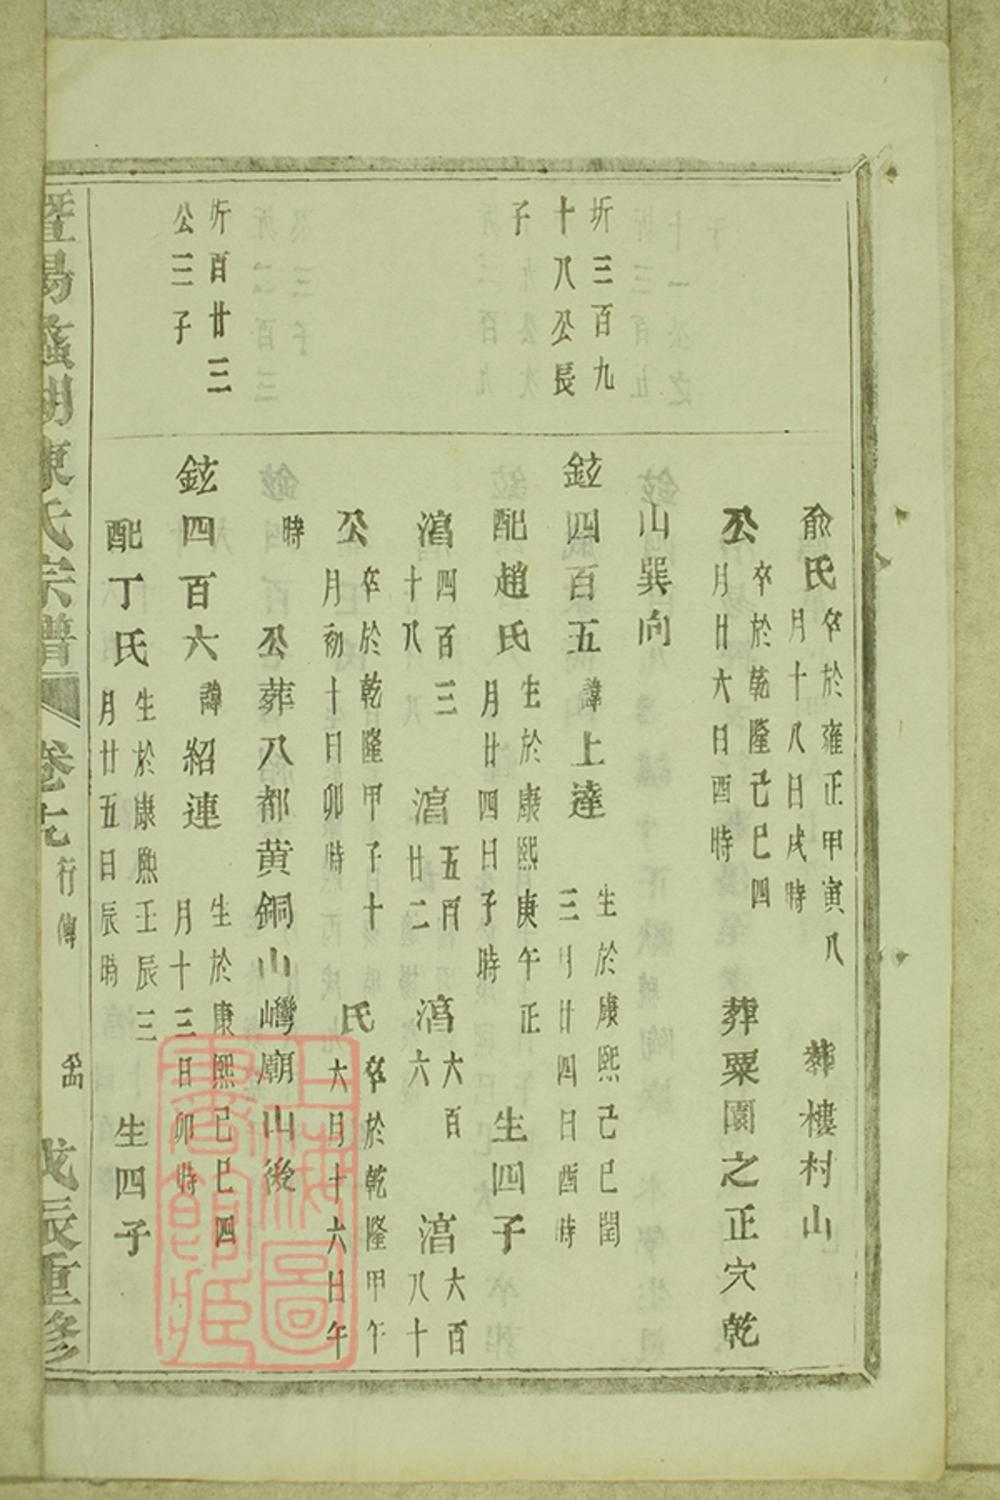 俞氏 卒於雍正甲寅八月十八日戌時 葬樓村山
公 卒於乾隆己巳四月廿六日酉時 葬粟園之正穴乾
山巽向
圻三百九十八公長子
鈜四百五 諱上達 生於康熙己巳閏三月廿四日酉時
配趙氏 生於康熙庚午正月廿四日子時 生四子
濸四百三十八 濸五百廿二 濸六百六 濸六百八十
公 卒於乾隆甲子十月初十日卯時 氏 卒於乾隆甲午六月十六日午
時 公葬八都黃銅山巒廟山後
圻百廿三公三子
鈜四百六 諱紹連 生於康熙己巳四月十三日卯時
配丁氏 生於康熙壬辰三月廿五日辰時 生四子
暨陽 湖陳氏宗譜 卷 行傳 戊辰重修
上海圖書館藏